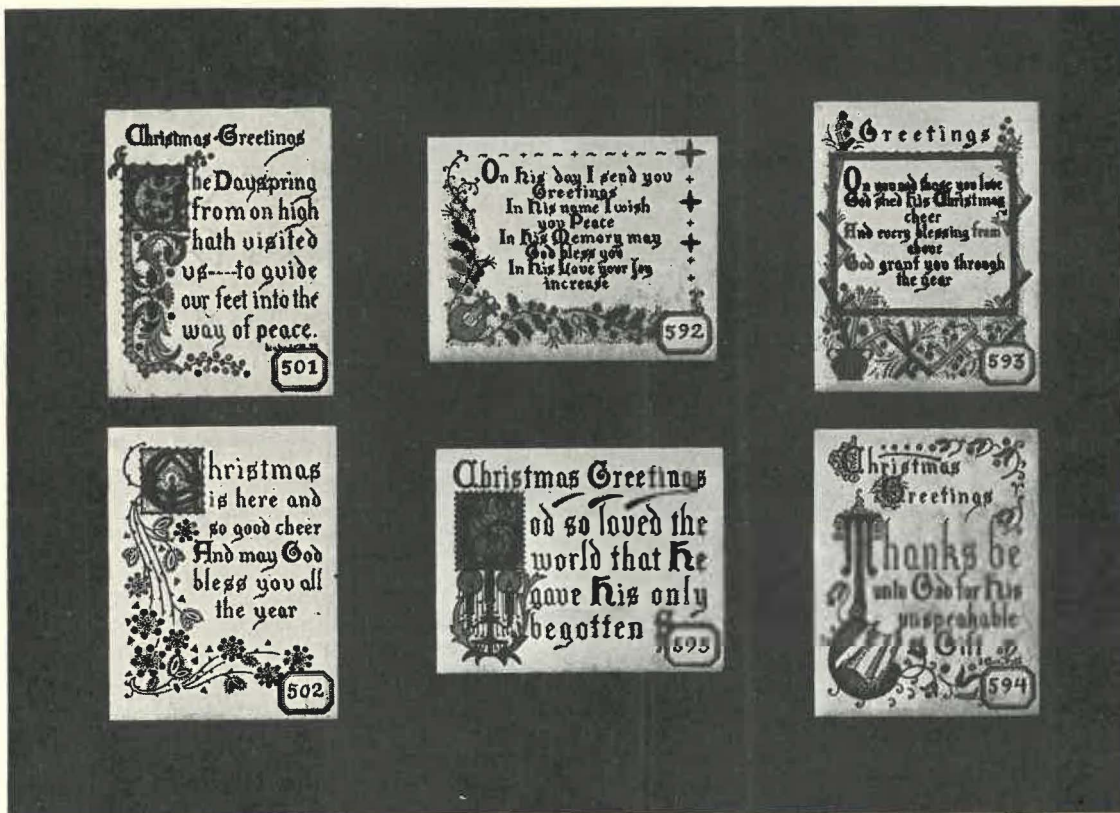 Christmas Greetings
The Dayspring
from on high
hath visited
us----to guide
our feet into the
way of peace.
501
On His day I send you
Greetings
In His name I wish
you Peace
In His Memory may
God bless you
In His Love your Joy
increase
592
Greetings
On you and those you love
God shed His Christmas
cheer
And every blessing from
above
God grant you through
the year
593
Christmas
is here and
so good cheer
And may God
bless you all
the year
502
Christmas Greetings
God so loved the
world that He
gave His only
begotten
595
Christmas
Greetings
Thanks be
unto God for His
unspeakable
Gift
594